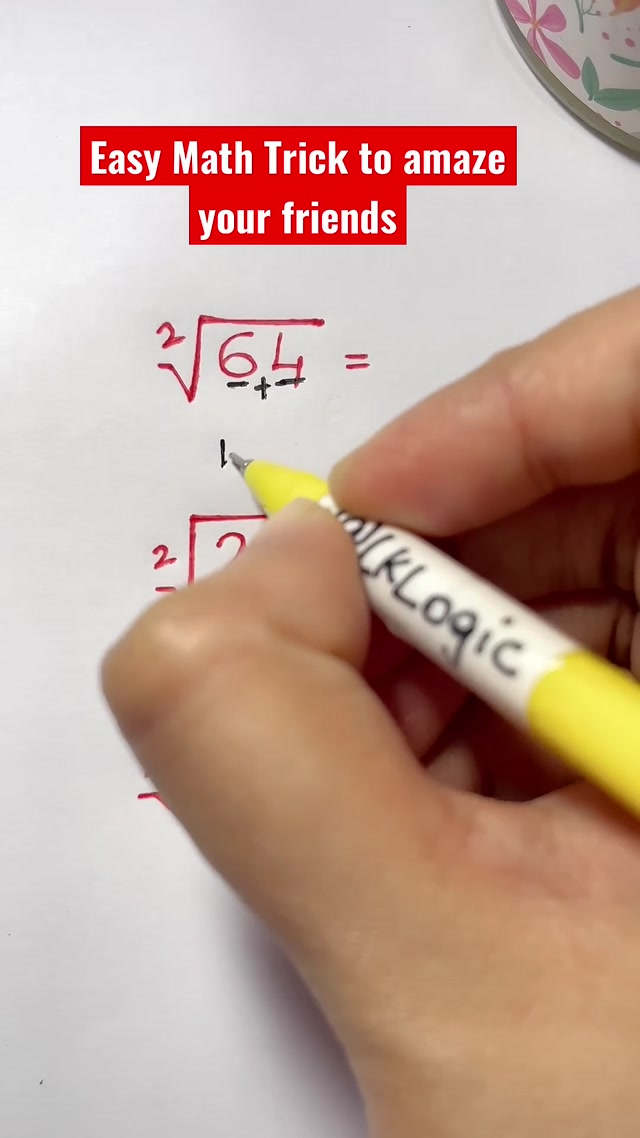 Easy Math Trick to amaze
your friends
2√64 =
+
1
2√2